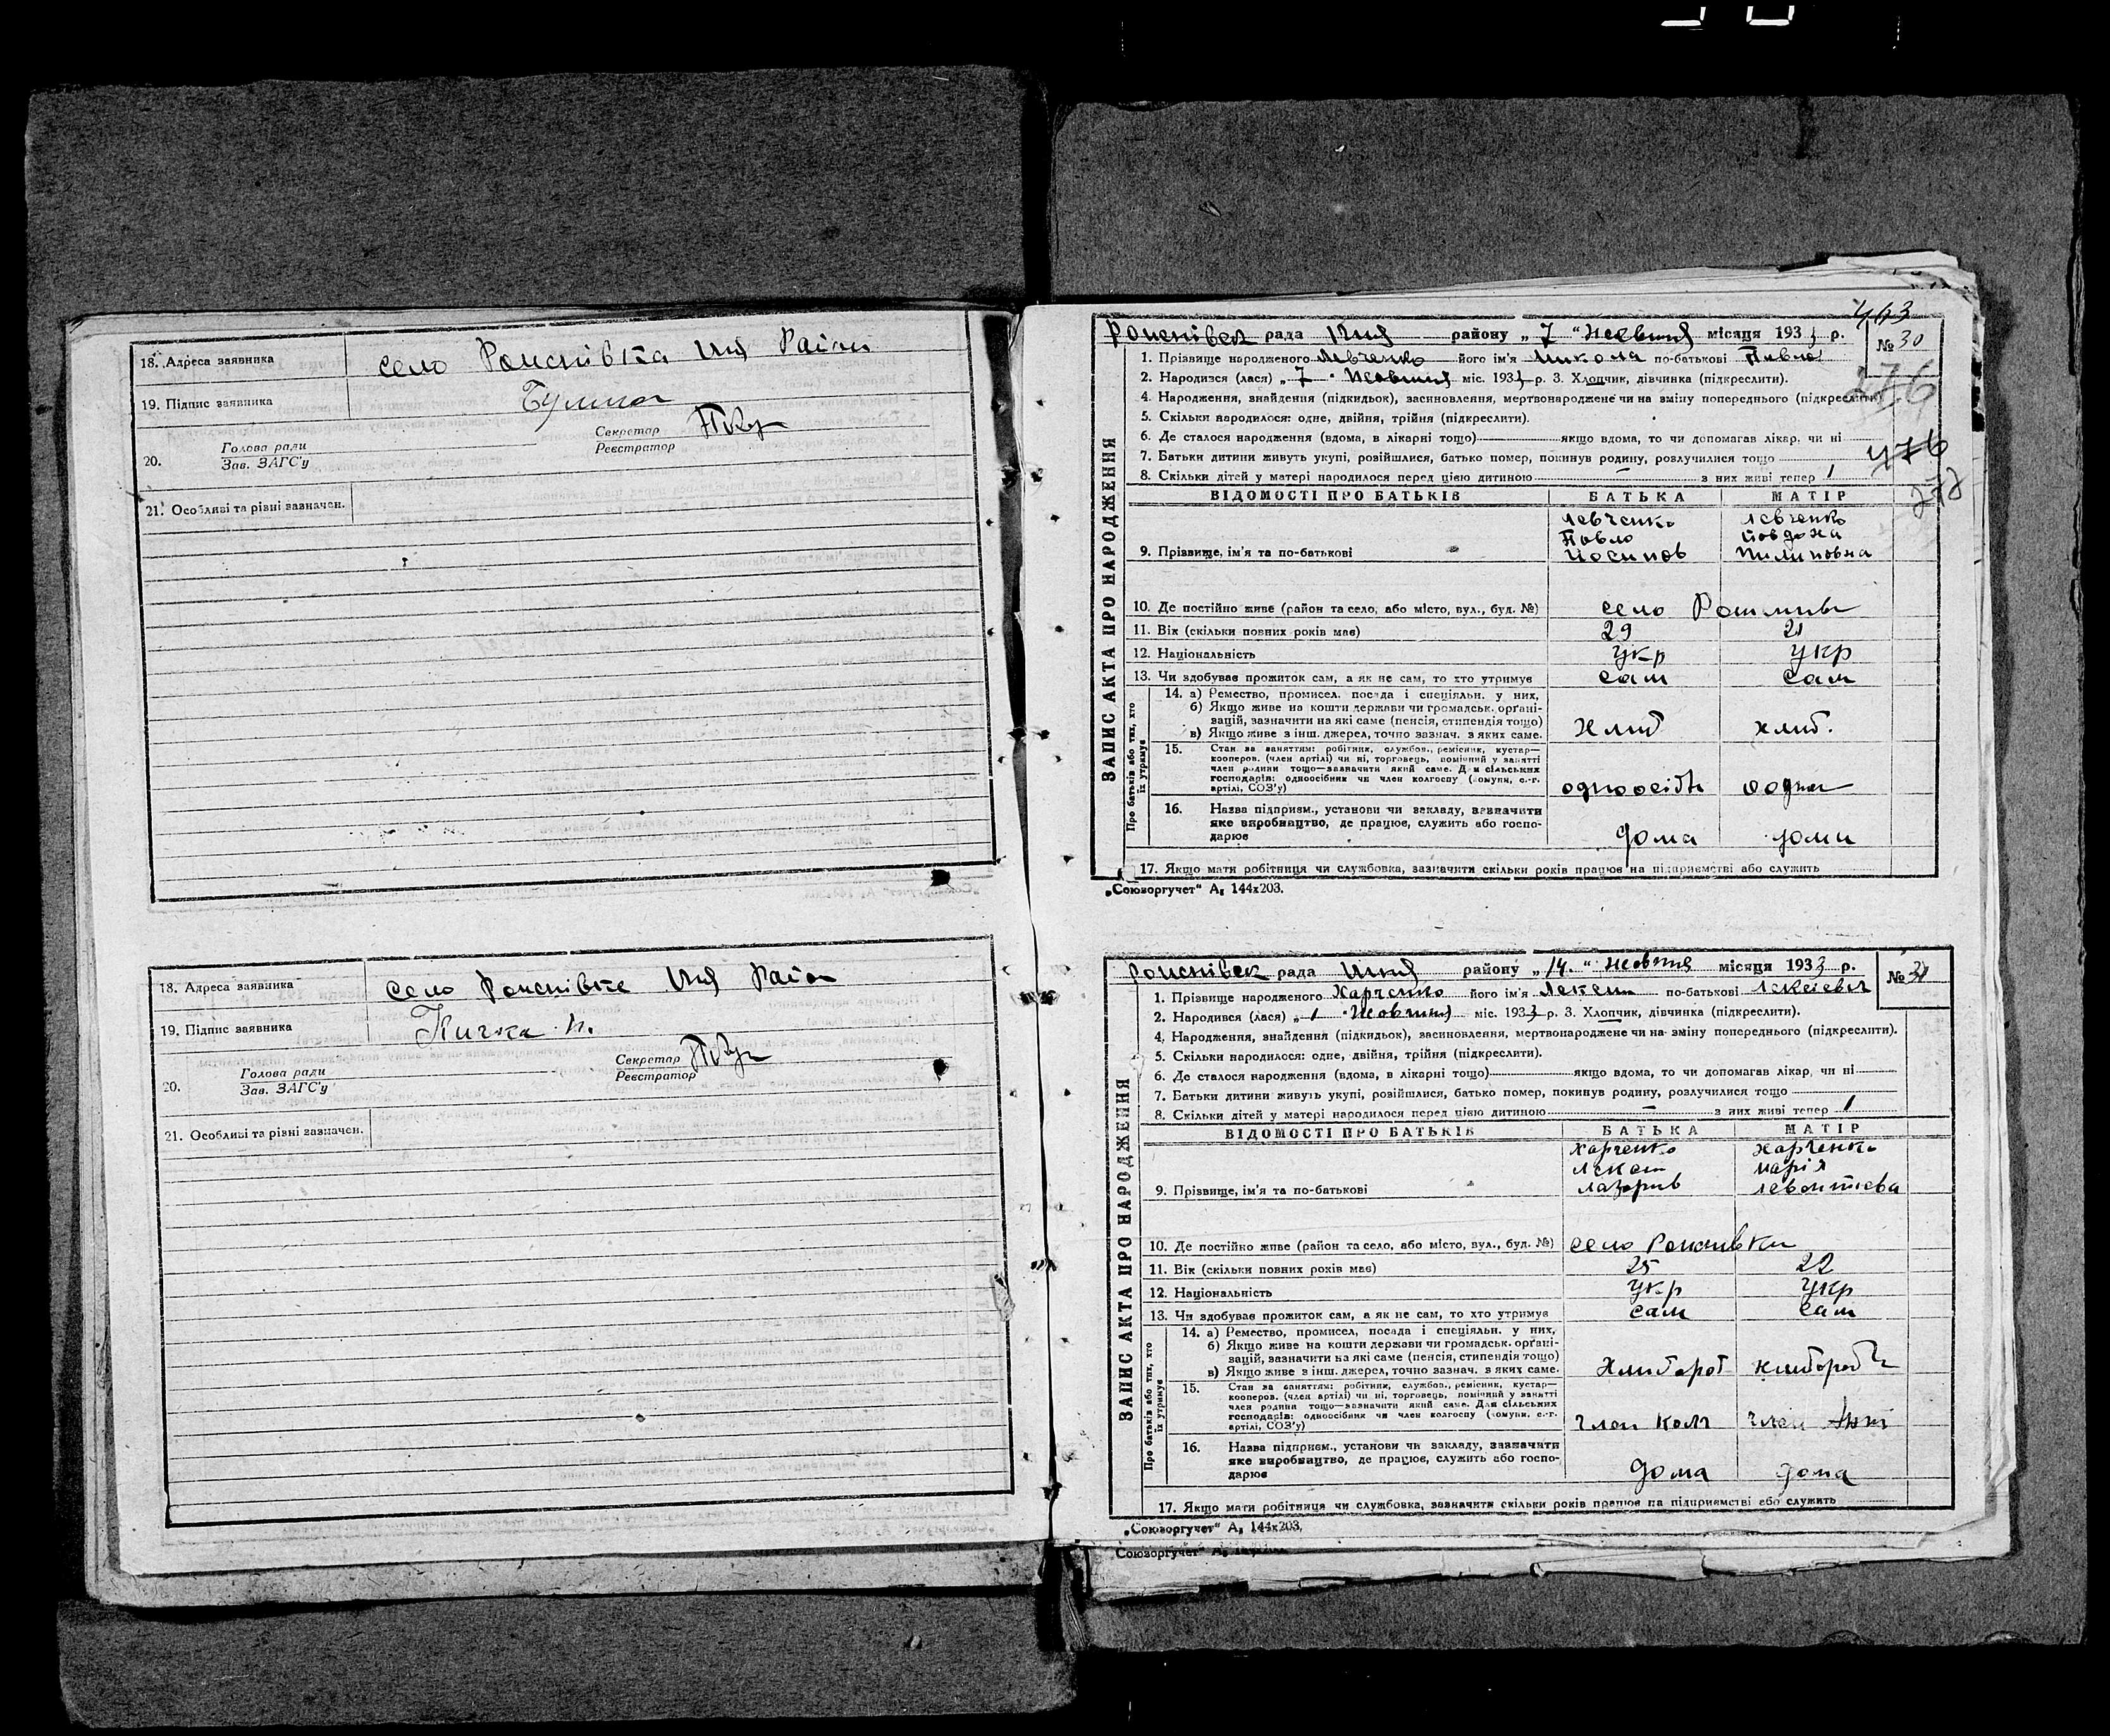 18. Адреса заявника село Райони
19. Підпис заявника
20. Голова ради
Зав. ЗАГС'у
Секретар
Реєстратор
21. Особливі та рівні зазначен.
18. Адреса заявника село Район
19. Підпис заявника Кичка
20. Голова ради
Зав. ЗАГС'у
Секретар
Реєстратор
21. Особливі та рівні зазначен.
рада району „ 7 “ місяця 193 3 р.
№ 30
1. Прізвище народженого Левченко його ім'я Микола по-батькові Павло
2. Народився (лася) „ 7 “ міс. 193 р. 3. Хлопчик, дівчинка (підкреслити).
4. Народження, знайдення (підкидьок), засиновлення, мертвонароджене чи на зміну попереднього (підкреслити)
276
5. Скільки народилося: одне, двійня, трійня (підкреслити).
6. Де сталося народження (вдома, в лікарні тощо) якщо вдома, то чи допомагав лікар, чи ні
7. Батьки дитини живуть укупі, розійшлися, батько помер, покинув родину, розлучилися тощо
476
8. Скільки дітей у матері народилося перед цією дитиною – з них живі тепер 1
ЗАПИС АКТА ПРО НАРОДЖЕННЯ
ВІДОМОСТІ ПРО БАТЬКІВ БАТЬКА МАТІР
Левченко Левченко
Павло Йовдоха
9. Прізвище, ім'я та по-батькові Йосипов Пилиповна
10. Де постійно живе (район та село, або місто, вул., буд. №) село
11. Вік (скільки повних років має) 29 21
12. Національність Укр Укр
13. Чи здобуває прожиток сам, а як не сам, то хто утримує Сам Сам
Про батьків або тих, хто їх утримує
14. а) Ремество, промисел, посада і спеціяльн. у них,
б) Якщо живе на кошти держави чи громадськ. орґані-
зацій, зазначити на які саме (пенсія, стипендія тощо)
в) Якщо живе з інш. джерел, точно зазнач. з яких саме. хліб хліб.
15. Стан за заняттям: робітник, службов., ремісник, кустар—
кооперов. (член артілі) чи ні, торговець, помічний у занятті
член родини тощо—зазначити який саме. Для сільських
господарів: одноосібник чи член колгоспу (комуни, с.-г.
артілі, СОЗ'у) одноосібн
16. Назва підприєм., установи чи закладу, зазначити
яке виробництво, де працює, служить або госпо-
дарює дома доми
17. Якщо мати робітниця чи службовка, зазначити скільки років працює на підприємстві або служить
„Союзоргучет“ А₅ 144х203.
рада району „ 14. “ місяця 193 3 р.
№ 31
1. Прізвище народженого Харченко його ім'я по-батькові
2. Народився (лася) „ 1 “ міс. 193 3 р. 3. Хлопчик, дівчинка (підкреслити).
4. Народження, знайдення (підкидьок), засиновлення, мертвонароджене чи на зміну попереднього (підкреслити).
5. Скільки народилося: одне, двійня, трійня (підкреслити).
6. Де сталося народження (вдома, в лікарні тощо) якщо вдома, то чи допомагав лікар, чи ні
7. Батьки дитини живуть укупі, розійшлися, батько помер, покинув родину, розлучилися тощо
8. Скільки дітей у матері народилося перед цією дитиною – з них живі тепер 1
ЗАПИС АКТА ПРО НАРОДЖЕННЯ
ВІДОМОСТІ ПРО БАТЬКІВ БАТЬКА МАТІР
Харченко Харченко
Марія
9. Прізвище, ім'я та по-батькові Лазорив Левонтієва
10. Де постійно живе (район та село, або місто, вул., буд. №) село
11. Вік (скільки повних років має) 25 22
12. Національність Укр Укр
13. Чи здобуває прожиток сам, а як не сам, то хто утримує Сам Сам
Про батьків або тих, хто їх утримує
14. а) Ремество, промисел, посада і спеціяльн. у них,
б) Якщо живе на кошти держави чи громадськ. орґані-
зацій, зазначити на які саме (пенсія, стипендія тощо)
в) Якщо живе з інш. джерел, точно зазнач. з яких саме. Хлибороб
15. Стан за заняттям: робітник, службов., ремісник, кустар—
кооперов. (член артілі) чи ні, торговець, помічний у занятті
член родини тощо—зазначити який саме. Для сільських
господарів: одноосібник чи член колгоспу (комуни, с.-г.
артілі, СОЗ'у) член колг член
16. Назва підприєм., установи чи закладу, зазначити
яке виробництво, де працює, служить або госпо-
дарює дома дома
17. Якщо мати робітниця чи службовка, зазначити скільки років працює на підприємстві або служить
„Союзоргучет“ А₅ 144х203.
Союзоргучет“ А₅